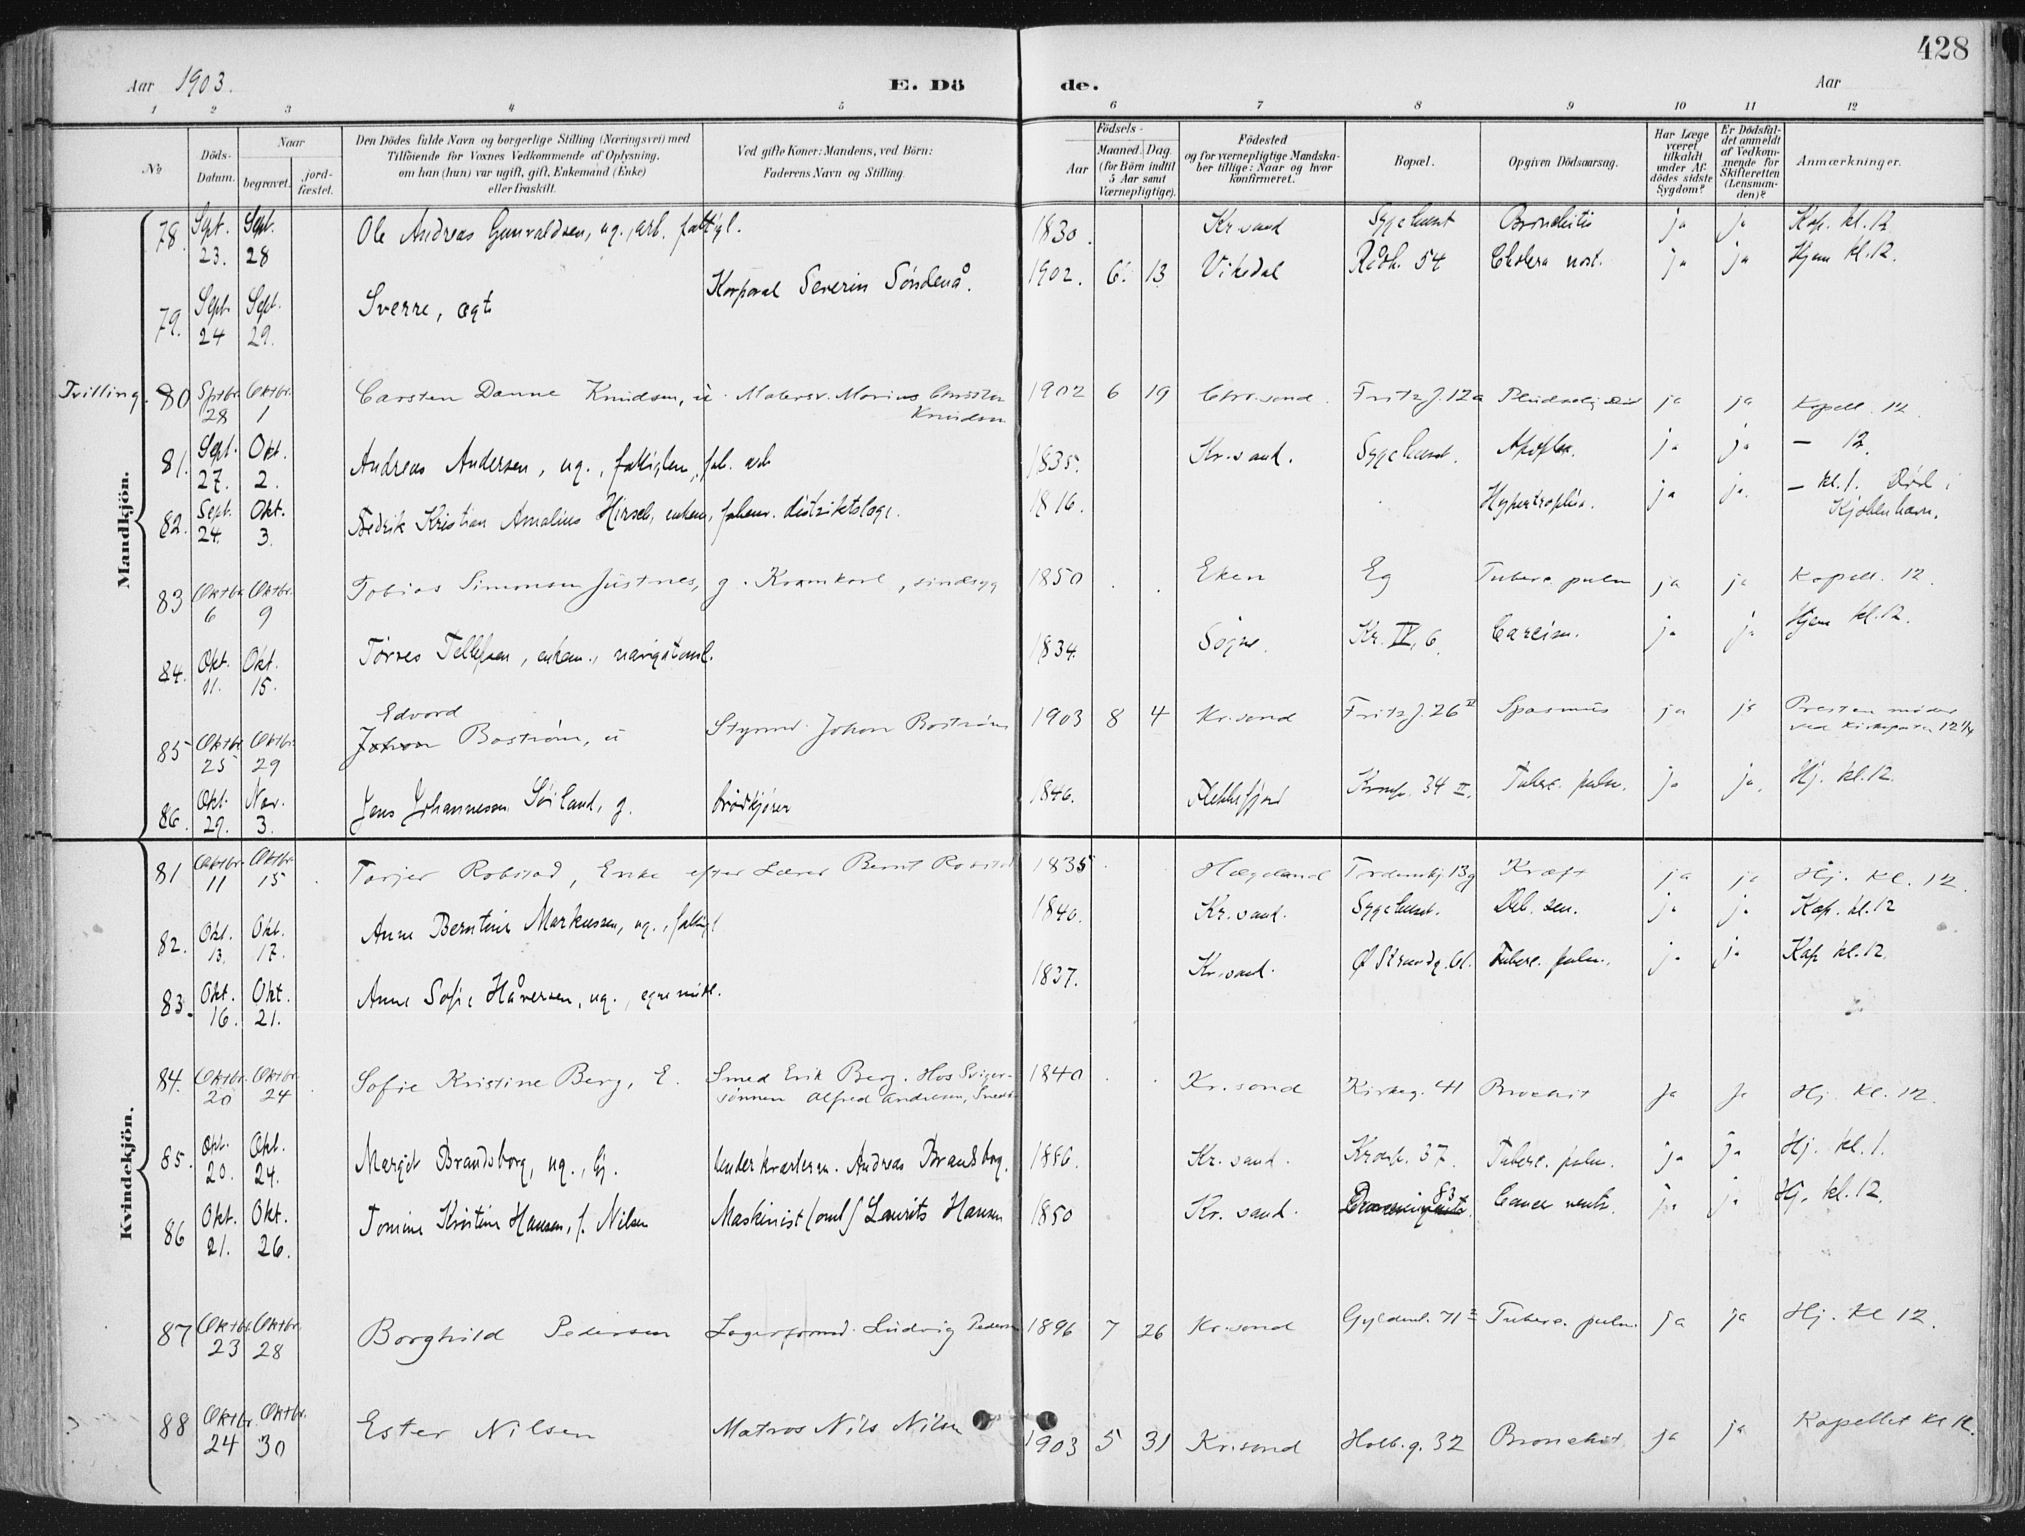 428
Aar 1903.
E. Dö de.
Aar
1 2 3 4 5 6 7 8 9 10 11 12
No
Döds-Datum.
Naar
begravet.
jord-fæstet.
Den Dödes fulde Navn og borgerlige Stilling (Næringsvei) med
Tilföiende for Voxnes Vedkommende af Oplysning,
om han (hun) var ugift, gift, Enkemand (Enke)
eller fraskilt.
Ved gifte Koner: Mandens, ved Börn:
Faderens Navn og Stilling.
Födsels-
Aar
Maaned. Dag.
(for Börn indtil
5 Aar samt
Værnepligtige).
Födested
og for værnepligtige Mandska-
ber tillige: Naar og hvor
konfirmeret.
Bopæl.
Opgiven Dödsaarsag.
Har Læge
været
tilkaldt
under Af-
dödes sidste
Sygdom?
Er Dödsfal-
det anmeldt
af Vedkom-
mende for
Skifteretten
(Lensman-
den)?
Anmærkninger.
Mandkjön.
78. Spt. 23. Sept. 28 Ole Andreas Gunvaldsen, ug., arb. fattigl. 1830. Kr.sand Sygehuset Bronchitis ja ja Kap. kl. 12
79. Sept. 24 Sept. 29. Sverre, ægt Korporal Severin Søndenå. 1902. 6. 13 Vikedal Rådh. 54 Cholera nost. ja ja Hjem kl. 12.
Tvilling. 80 Sptbr. 28 Oktbr. 1 Carsten Danne Knudsen, u. Malersv. Marius Christian Knudsen 1902 6 19 Chr.sand. Fritz J. 12a Pludselig Död ja ja Kapell. 12.
81. Sept. 27. Okt. 2. Andreas Andersen, ug., fattiglem, fab. arb 1835. Kr.sand. Sygehuset. Apoplex. ja ja — 12.
82. Sept. 24. Okt. 3. Fredrik Kristian Amalius Hirsch, enkem, forhenv. distriktslæge. 1816. Hypertrophia. ja ja. — kl. 1. Død i Kjøbenhavn.
83 Oktbr. 6 Oktbr. 9 Tobias Simonsen Justnes, g. Kramkarl, sindssyg 1850 Eken Eg Tuberc. pulm ja ja Kapell. 12.
84. Okt. 11. Okt. 15. Tørres Tellefsen, enkem., 1834. Søgne. Kr. IV, 6. Carcin. ja ja Hjem kl. 12.
85 Oktbr. 25 Oktbr. 29 Edvard Johan Bostrøm, u Styrmd. Johan Bostrøm 1903 8 4 Kr.sand Fritz J. 26 II Spasmus ja ja Presten møder ved Kirkeporten 12 1/4
86. Okt. 29. Nov. 3. Jens Johannessen Søiland, g. brødkjører 1846. Flekkefjord Kronp. 34 II. Tuberc. pulm. ja ja. Hj. kl. 12.
Kvindekjön.
81 Oktbr. 11 Oktbr. 15 Torjer Robstad, Enke efter Lærer Bernt Robstad 1835 Hægeland Tordenskj. 13g Kræft ja ja Hj. kl. 12.
82. Okt. 13. Okt. 17. Anne Berntine Markussen, ug., fattigl 1840. Kr.sand. Sygehuset. Deb. sen. ja ja Kap. kl. 12
83. Okt. 16. Okt. 21. Anne Sofie Håversen, ug., egne midl. 1837. Kr.sand. Ø Strandg. 61. Tuberc. pulm. ja ja Kap kl. 12
84. Oktbr. 20 Oktbr. 24 Sofie Kristine Berg, E. Smed Erik Berg. Hos Sviger-
sønnen Alfred Andresen, 1840 Kr.sand Kirkeg. 41 Bronchit ja ja Hj. kl. 12.
85. Okt. 20. Okt. 24. Margit Brandsborg, ug., hj. Andreas Brandsborg. 1886. Kr.sand. Kronp. 37. Tuberc. pulm. ja ja Hj. kl. 1.
86 Okt. 21. Okt. 26. Tomine Kristine Hansen, f. Nilsen Maskinist Laurits Hansen 1850 Kr.sand. 83 Cancer ventr. ja ja Hj. kl. 12.
87 Oktbr. 23 Oktbr. 28 Borghild Pedersen Lagerformd. Ludvig Pedersen 1896 7 26 Kr.sand Gyldenl. 71 Tuberc. pulm. ja ja Hj. kl 12.
88 Oktbr. 24 Oktbr. 30 Ester Nilsen Matros Nils Nilsen 1903 5 31 Kr.sand Holb.g. 32 Bronchit ja ja Kapellet kl 12.